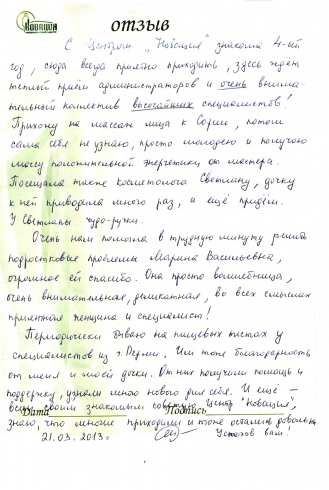 Новация
ОТЗЫВ
С Центром "Новация" знакома 4-ый
год, сюда всегда приятно приходить, здесь ждёт
тёплый приём администраторов и очень внима-
тельный коллектив высочайших специалистов!
Прихожу на массаж лица к Софии, потом
сама себя не узнаю, просто молодею и получаю
массу положительной энергетики от мастера.
Посещала также косметолога Светлану, дочку
к ней приводила много раз, и ещё придём.
У Светланы чудо-ручки.
Очень нам помогла в трудную минуту решить
подростковые проблемы Марина Васильевна,
огромное ей спасибо. Она просто волшебница,
очень внимательная, деликатная, во всех смыслах
приятная женщина и специалист!
Периодически бываю на пищевых тестах у
специалистов из г. Перми. Им тоже благодарность
от меня и моей дочки. От них получили помощь и
поддержку, узнали много нового для себя. И ещё —
всем своим знакомым советую Центр "Новация",
Дата Подпись
знаю, что многие приходили и тоже остались довольны
21.03.2013г. Успехов вам!